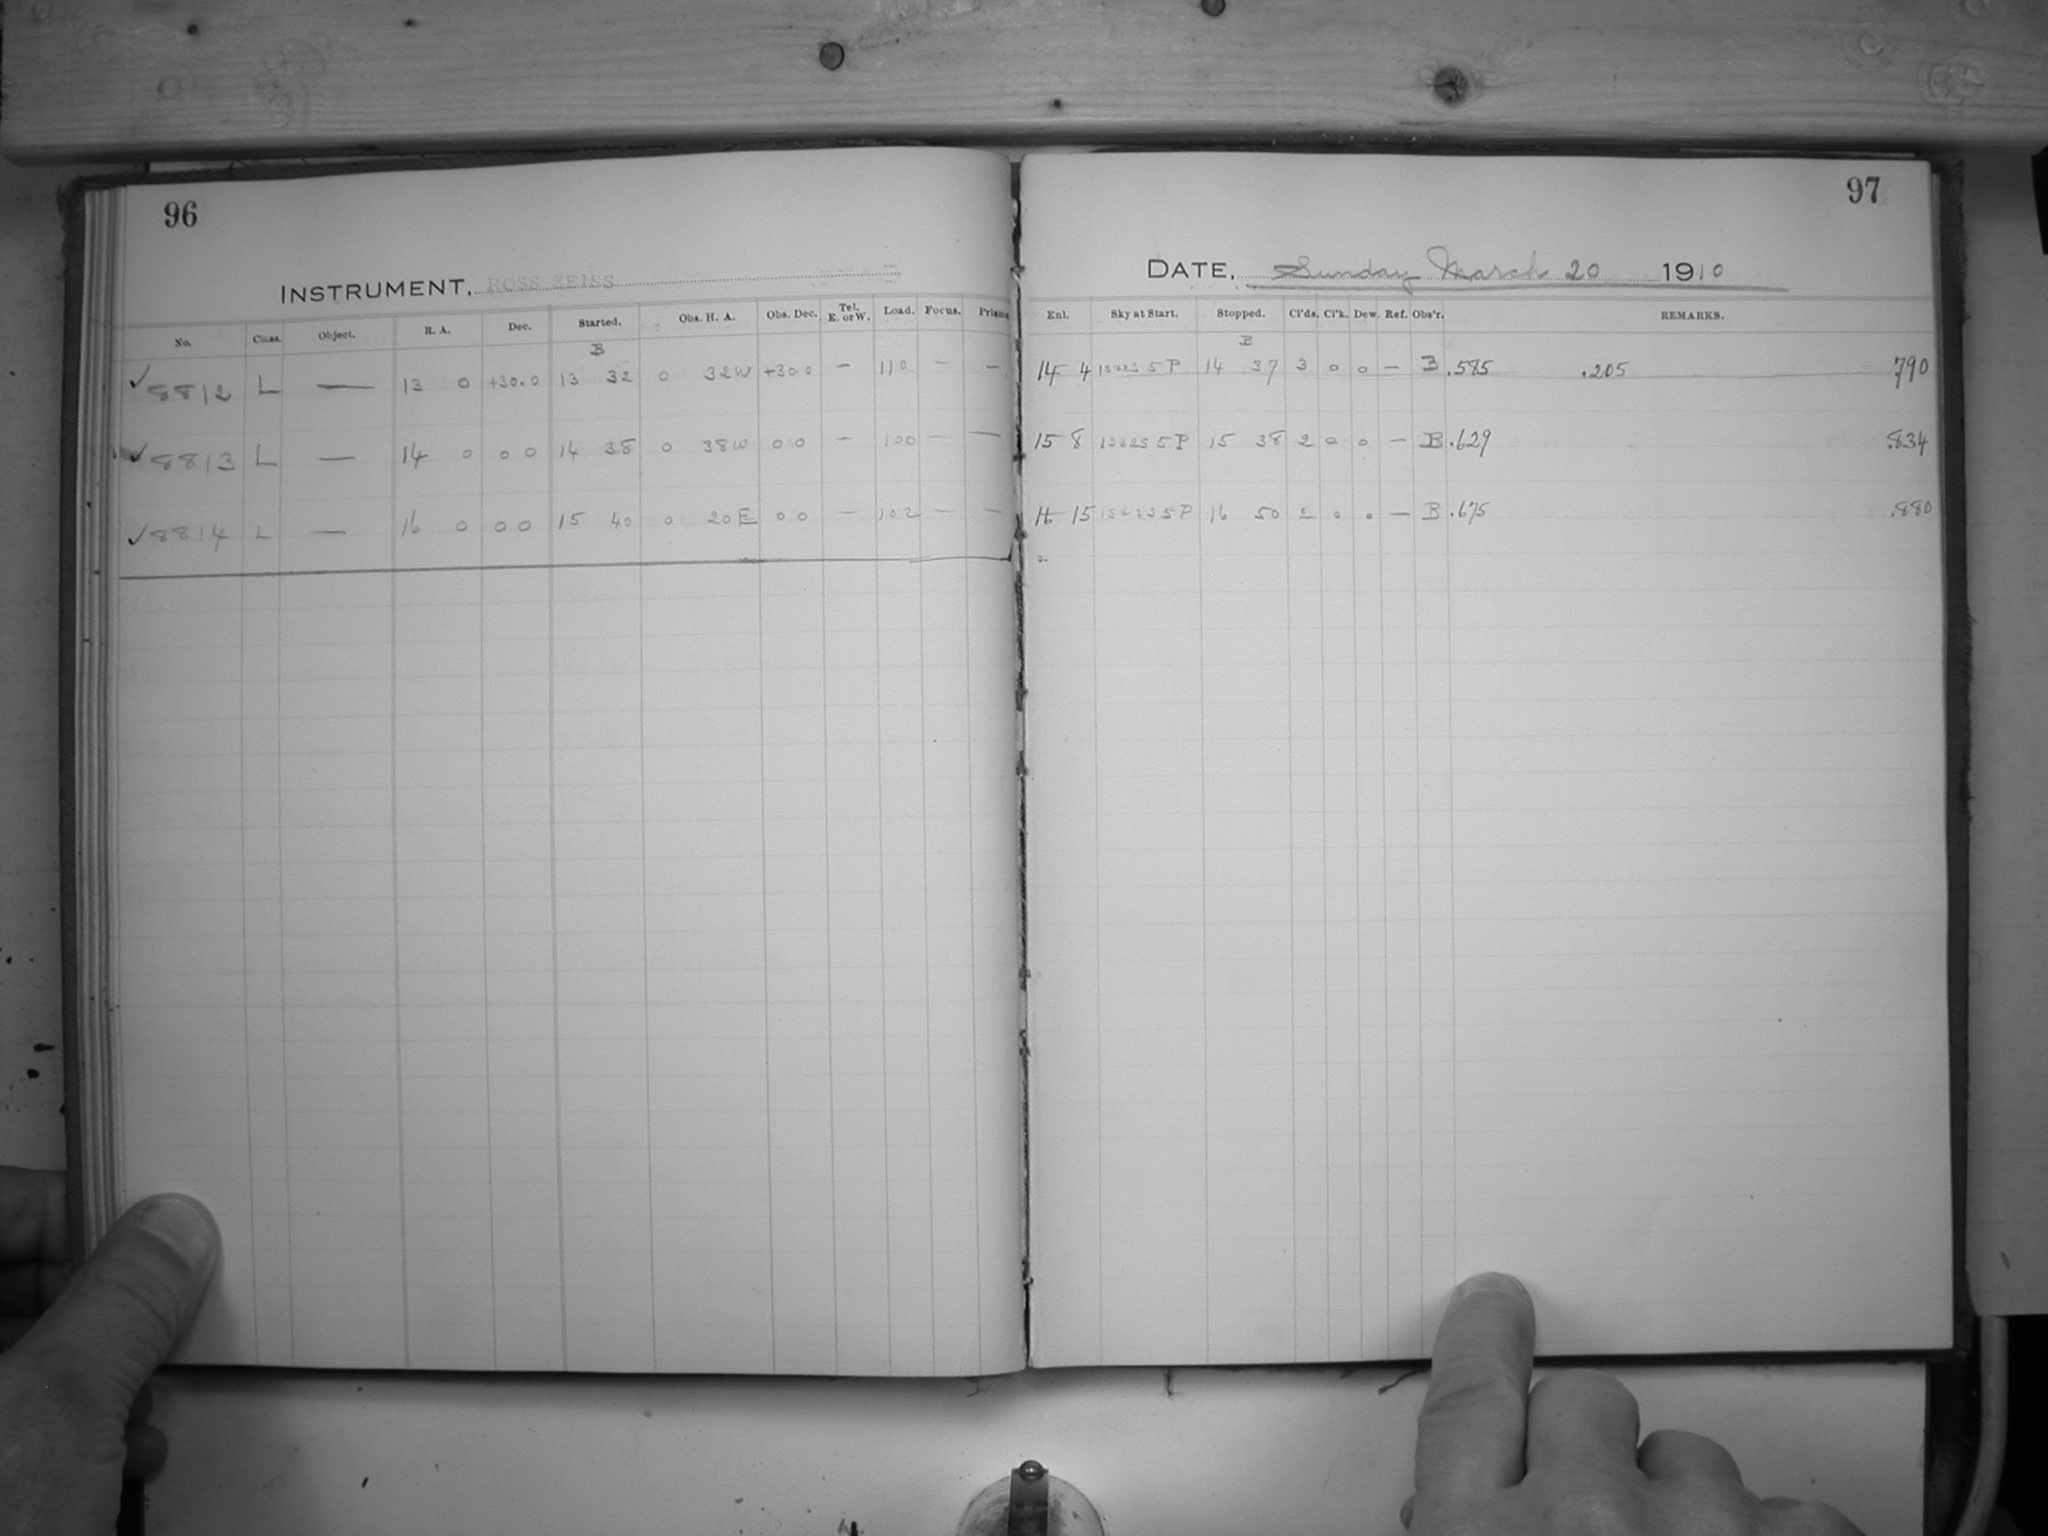 96
INSTRUMENT, ROSS ZEISS
No. Class. Object. R. A. Dec. Started. Obs. H. A. Obs. Dec. Tel. E. or W. Load. Focus. Prism
B
✓ 8812 L — 13 0 +30.0 13 32 0 32W +30.0 — 110 — —
✓ 8813 L — 14 0 0 0 14 38 0 38W 0 0 — 100 — —
✓ 8814 L — 16 0 0 0 15 40 0 20E 0 0 — 102 — —
97
DATE, Sunday March 20 1910
Enl. Sky at Start. Stopped. Cl'ds. Cl'k. Dew. Ref. Obs'r. REMARKS.
B
14 4 5 P 14 37 3 0 0 — B .585 .205 790
15 8 5 P 15 38 2 0 0 — B .629 .834
16 15 5 P 16 50 2 0 0 — B .675 .880